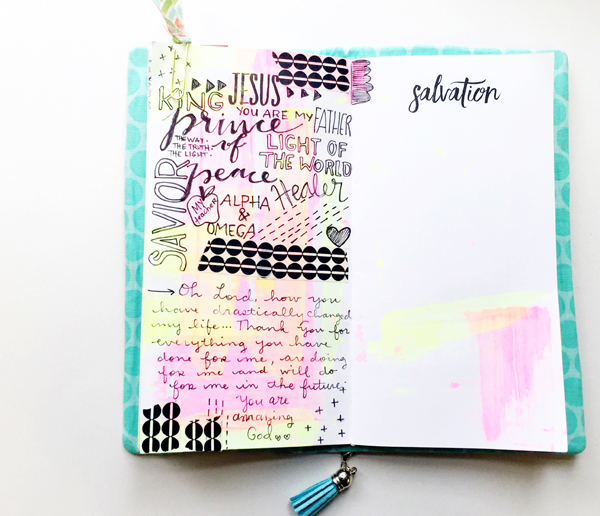 KING JESUS
YOU ARE MY FATHER
prince of peace
THE WAY.
THE TRUTH.
THE LIGHT.
LIGHT OF
THE WORLD
SAVIOR
Healer
My
teacher
ALPHA
&
OMEGA
Oh Lord, how you
have drastically changed
my life... Thank you for
everything you have
done for me, are doing
for me and will do
for me in the future,
You are
amazing
God
salvation